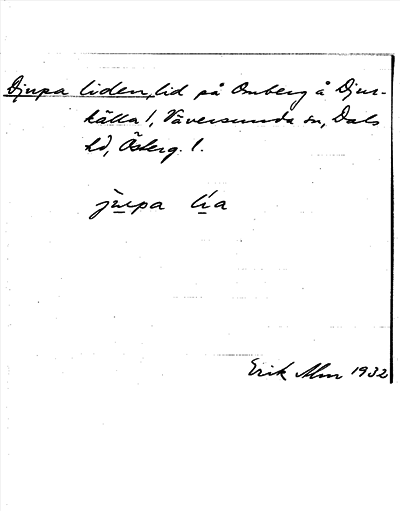 Djupa liden, lid på Omberg å Djur-
källa!, Väversunda sn, Dals
hd, Österg. !.
jùpa lía
Erik Alm 1932